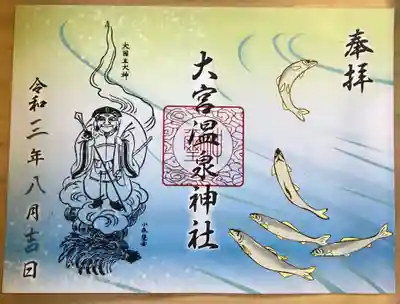 奉拝
大宮温泉神社
大国主大神
令和三年八月吉日